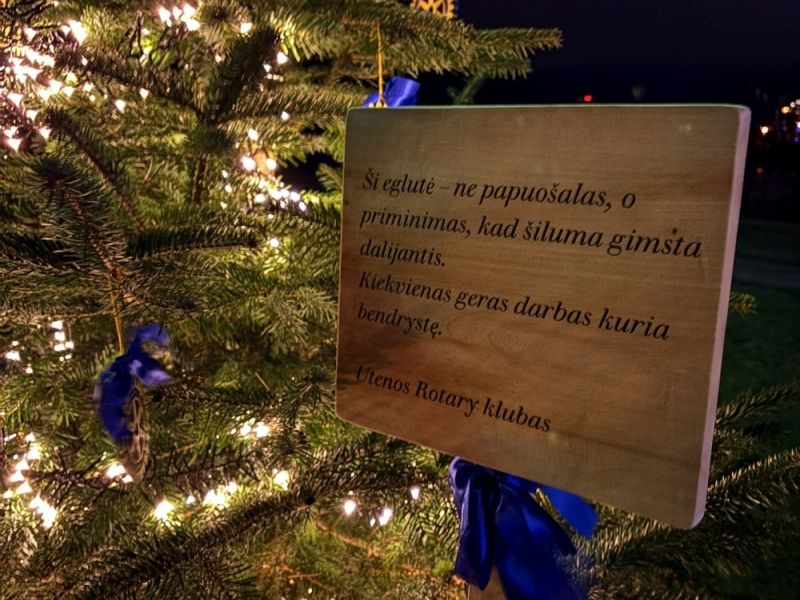 Ši eglutė – ne papuošalas, o
priminimas, kad šiluma gimsta
dalijantis.
Kiekvienas geras darbas kuria
bendrystę.
Utenos Rotary klubas